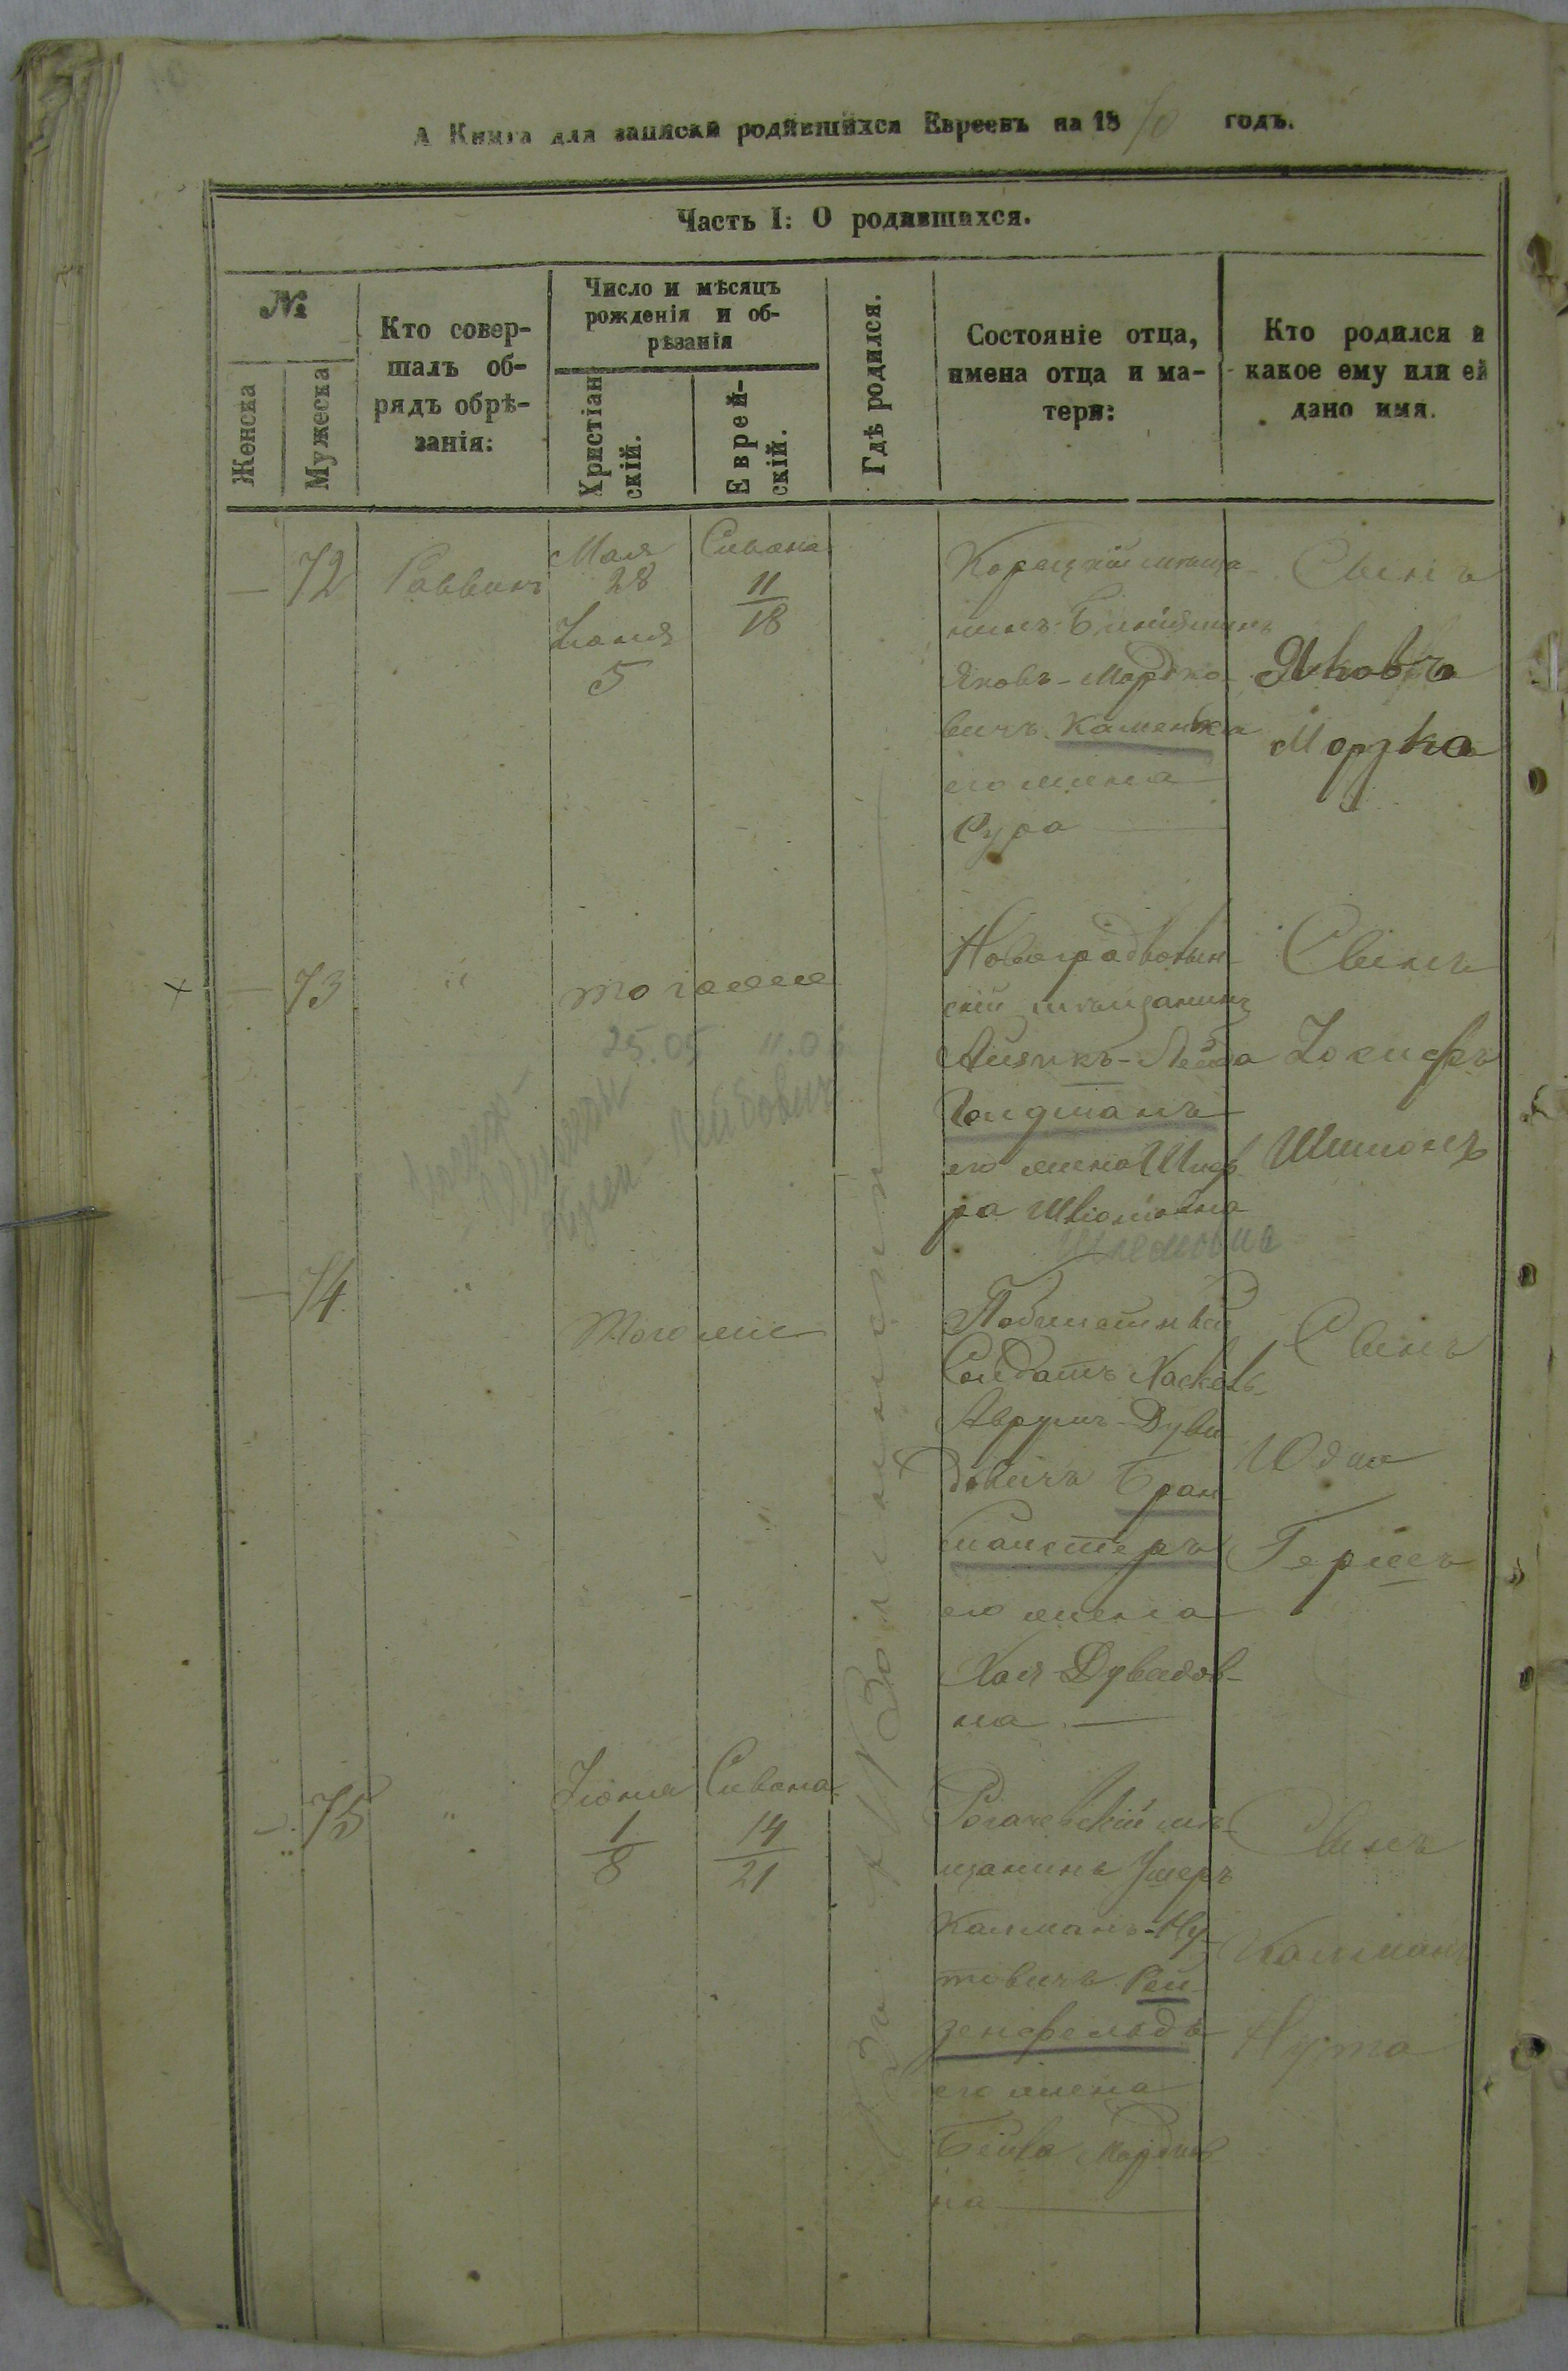 А Книга для записки родившихся Евреевъ на 1870 годъ.
Часть I: О родившихся.
№
Женска
Мужеска
Кто совер-
шалъ об-
рядъ обрѣ-
занія:
Число и мѣсяцъ
рожденія и об-
рѣзанія
Христіан
скій.
Еврей-
скій.
Гдѣ родился.
Состояніе отца,
имена отца и ма-
тери:
Кто родился и
какое ему или ей
дано имя.
72
Раввинъ
Мая
28
Іюня
5
Сивана
11
18
Корецкій мѣща-
нинъ Биніяминъ
Яковъ-Мордко
вичъ Каменка
его жена
Сура
Сынъ
Яковъ
Мордко
73
тогоже
25.05 11.0
Лейбович
Новоградволын
скій мѣщанинъ
Айзикъ-Лейба
Гольдманъ
его жена Шиф
ра
Шлемовна
Сынъ
Іосифъ
Шимонъ
74
Тогоже
Солдатъ Хаскель
Аврумъ-Дуви
довичъ Бран
его жена
Хая Дувидов-
на
Сынъ
Юдко
Гершъ
75
Іюня
1
8
Сивана
14
21
Рогачевскій мѣ-
щанинъ Ушеръ
Калманъ-Ну-
товичъ Рей
зенфельдъ
его жена
Бейла
на
Сынъ
Калманъ
Нута